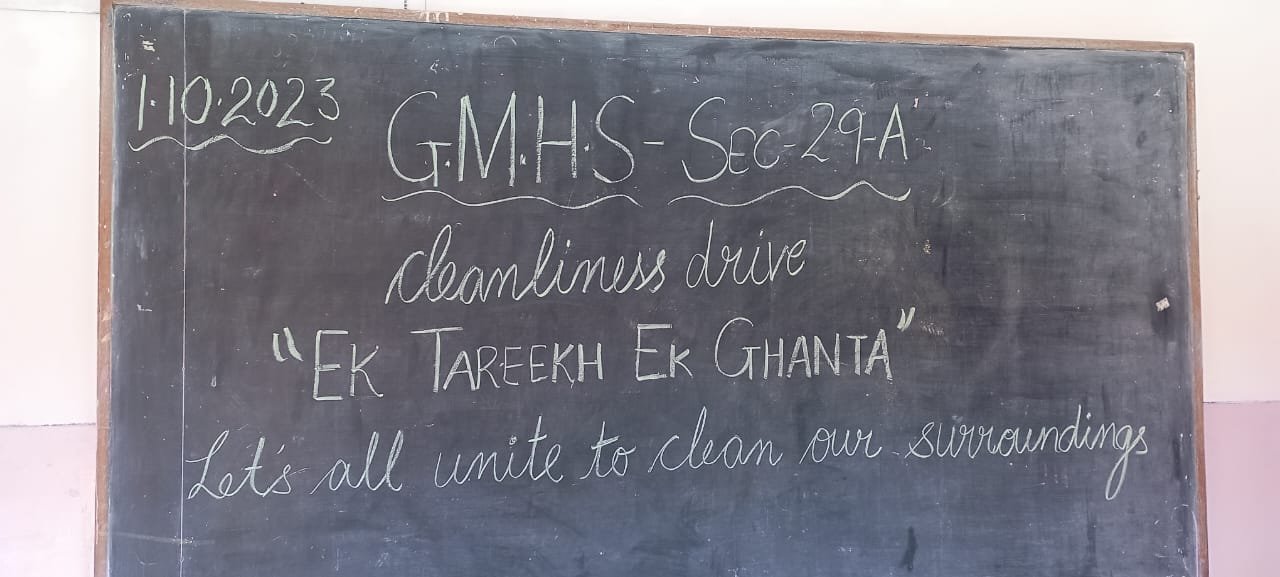 1.10.2023
G.M.H.S - SEC-29-A
cleanliness drive
"EK TAREEKH EK GHANTA"
Let's all unite to clean our surroundings